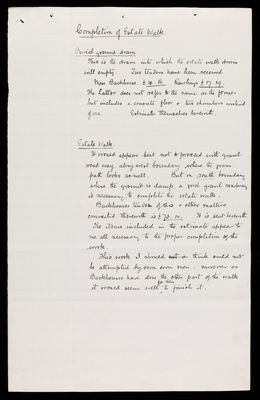 Completion of Estate Walk.
Buried ground drain
This is the drain into which the estate walk drain
will empty. Two tenders have been received
Messrs Backhouse £ Rawlings £
The Latter does not refer to the same as the former
but includes a concrete floor & two chambers instead
of one. Estimates themselves herewith.
Estate Walk.
It would appear best not to proceed with grand
walk way along west boundary where the grass
path looks so well. But on south boundary
where the ground is damp, a good gravel walkway
is necessary to complete the estate walk.
Backhouses tender of this & other matters
connected therewith is £ It is sent herewith
The items included in the estimate appear to
me all necessary to the proper completion of the
work.
This work I should think could not
be attempted by our own men. moreover as
Backhouses have done the other part of the walk
it would seem well for them to finish it.